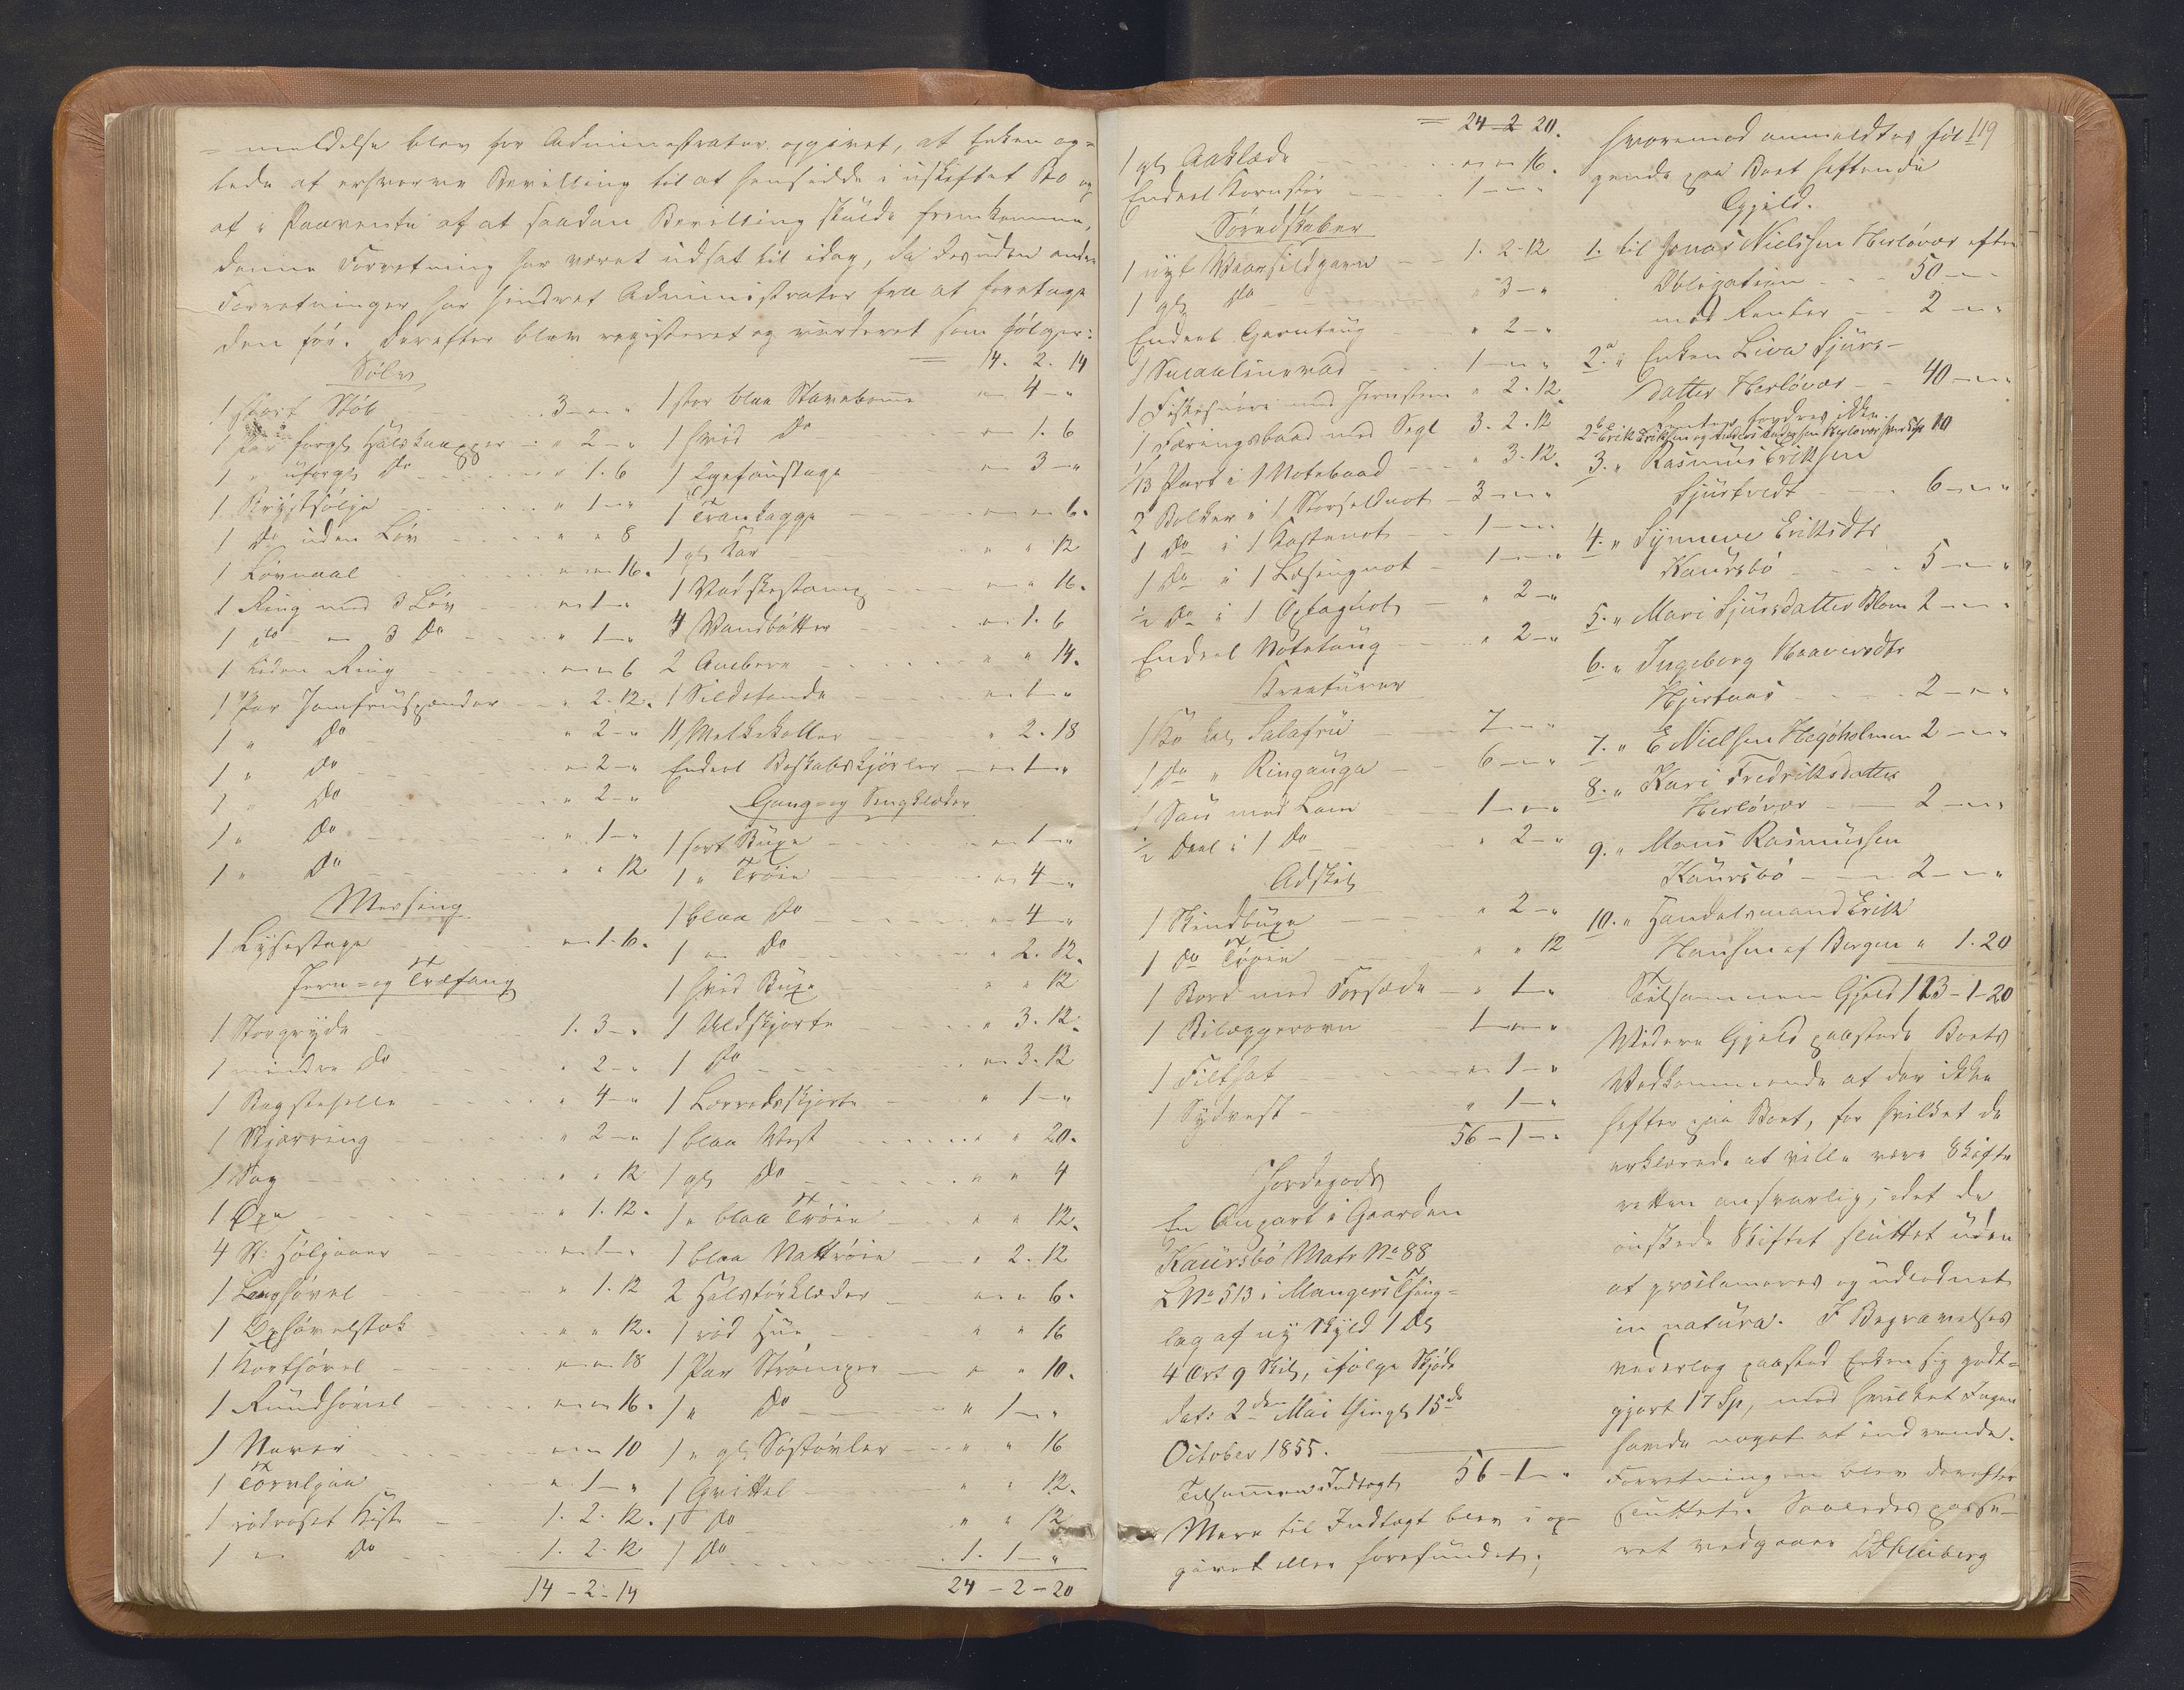 = meldelse blev for Administrator opgivet, at Enken ag=
tede at erhverve Bevilling til at hensidde i uskiftet Bo og
at i Paavente af at saadan Bevilling skulde fremkomme,
denne Forretning har været udsat til idag, da desuden andre
Forretninger har hindret Administrator fra at foretage
den før. Derefter blev registeret og vurderet som følger:
Sølv
1 stort Støb 3 — — "
1 Par forgt Halsknapper " 2 — "
1 " uforgt Do " 1. 6
1 Brystsølje " 1 — "
1 Do uden Løv " " 8
1 Løvnaal " " 16.
1 Ring med 3 Løv " 1 — "
1 Do — " 3 Do " 1 — "
1 liden Ring " " 6
1 Par Jomfruspænder " 2. 12.
1 " Do " 2 — "
1 " Do " 2 — "
1 " Do " 2 — "
1 " Do " 1 — "
1 " Do " " 12
Messing
1 Lysestage " 1. 6.
Jern= og Træfang
1 Storgryde 1. 3 — "
1 mindre Do " 2 — "
1 Bagstehelle " 4 — "
1 Skjærring " 2 — "
1 Sag " " 12
1 Øxe " 1. 12.
4 St: Høljaaer " 1 — "
1 Langhøvel " 1. 12
1 Ophøvelstok " " 12.
1 Korthøvel " " 18
1 Rundhøvel " " 16.
1 Naver " " 10
1 Torvljaa " 1 — "
1 rødroset Kiste 1. 2. 12.
1 " Do 1. 2. 12
14 — 2 — 14
= 14. 2. 14
1 stor blaa Stavebomme " 4 — "
1 hvid Do " 1. 6
1 Egefoustage " 3 — "
1 Trankagge " " 6.
1 gl Kar " " 12
1 Vadskestamp " " 16.
4 Vandbøtter " 1. 6
2 Ambere " " 14.
1 Sildetønde " 1 — "
11 Melkekoller " 2. 18
Endeel Boskabskjørler " 1 — "
Gang= og Sengklæder
1 sort Buxe " 1 — "
1 " Trøie " 4 — "
1 blaa Do " 4 — "
1 " Do " 2. 12.
1 hvid Buxe " " 12
1 Uldskjorte " 3. 12.
1 Do " 3. 12
1 Lærredsskjorte " 1 — "
1 blaa Vest " " 20.
1 gl Do " " 4
1 " blaa Trøie " " 12.
1 blaa Nattrøie " 2. 12
2 Halstørklæder " " 6.
1 rød Hue " " 16
1 Par Strømper " " 10.
1 " Do " 1 — "
1 " gl Søstøvler " " 16
1 Grittel " " 12.
1 Do " " 12
1 Do 1. 1 — "
24 — 2 — 20
= 24 — 2 20.
1 gl Aaklæde " " 16.
Endeel Kornstør 1 — "
Søredskaber
1 nyt Vaarsildgarn 1. 2. 12
1 gl Do " 3 — "
Endeel Garntoug " 2 — "
1 Smaalinevad 1 — " "
1 Fiskesnøre med Jernsteen " 2. 12.
1 Færingsbaad med Segl 3. 2. 12
1/13 Part i 1 Notebaad " 3. 12.
2 Bolker i 1 Storseldnot 3 — " "
1 Do i 1 Kastenot 1 — "
1 Do i 1 Læsingnot 1 — "
1/2 Do i 1 Optagnot " 2 — "
Endeel Notetoug " 2 — "
Kreaturer
1 Ko kalt Salafrii 7 — "
1 Do " Ringauga 6 — "
1 Sau med Lam 1 — "
1/2 Deel i 1 Do " 2 — "
Adskilt
1 Skindbuxe " 2 — "
1 Do Trøie " " 12
1 Bord med Forsæde " 1 — "
1 Bilæggerovn 1 — "
1 Filthat " 1 — "
1 Sydvest " 1 — "
56 — 1 — "
Jordegods
En Anpart i Gaarden
Kaursbø Matr No 88
L No 513 i Mangers Thing=
lag af ny Skyld 1 Dl
4 Ort 9 Skil, ifølge Skjøde
dat: 2den Mai thingl 15de
October 1855.
Tilsammen Indtægt 56 — 1 — "
Mere til Indtægt blev i op=
givet eller forefundet;
119
hvoremod anmeldtes føl=
gende paa Boet heftende
Gjeld.
1. til Jonas Nielssen Herløvær efter
Obligation 50 — "
med Renter 2 — "
2.a " Enken Liva Sjurs=
datter Herløvær 40 — "
Renter fordres ikke
2b Erik Eriksen og Anders Andersen Herløvær hver 5 Sp 10
3. " Rasmus Eriksen
Sjurtvedt 6 — "
4. " Synneve Eriksdtr
Kaursbø 5 — "
5. " Mari Sjursdatter Blom 2 — "
6. " Ingeborg Haaversdtr
Hjertaas 2 — "
7. " E Nielsen Høgøholmen 2 — "
8. " Kari Fredriksdatter
Herløvær 2 — "
9. " Mons Rasmussen
Kaursbø 2 — "
10. " Handelsmand Erik
Hansen af Bergen " 1. 20
Tilsammen Gjeld 123 — 1 — 20
Videre Gjeld paastode Boets
Vedkommende at der ikke
hefter paa Boet, for hvilket de
erklærede at ville være Skifte
retten ansvarlig, idet de
ønskede Skiftet sluttet uden
at proclameres og udlodnet
in natura. I Begravelses
vederlag paastod Enken sig godt=
gjort 17 Sp, mod hvilket Ingen
havde noget at indvende.
Forretningen blev derefter
sluttet. Saaledes passe=
ret vedgaaer Heiberg